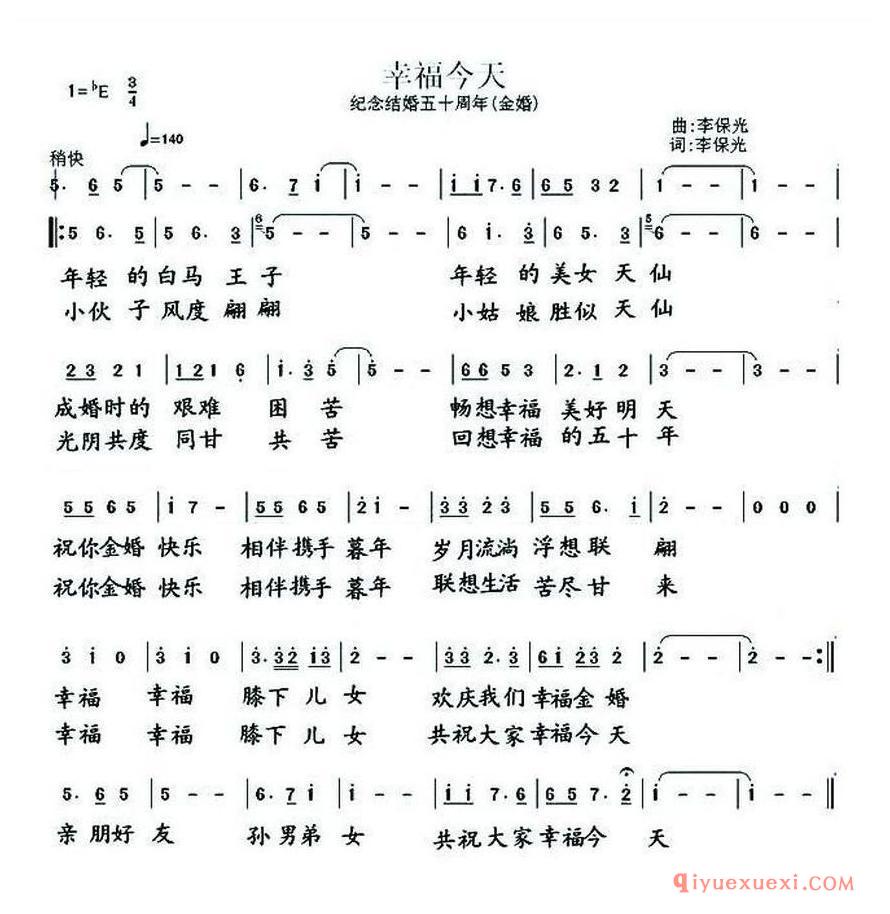 幸福今天
1=♭E 3/4
纪念结婚五十周年(金婚)
♩=140
曲:李保光
词:李保光
稍快
5. 6 5 | 5 - - | 6. 7 i | i - - | i i 7. 6 | 6 5 3 2 | 1 - - | 1 - - |
‖: 5 6. 5 | 5 6. 3 | 5 - - | 5 - - | 6 i. 3 | 6 5. 3 | 6 - - | 6 - - |
年轻的白马王子 年轻的美女天仙
小伙子风度翩翩 小姑娘胜似天仙
2 3 2 1 | 1 2 1 6 | i. 3 5 | 5 - - | 6 6 5 3 | 2. 1 2 | 3 - - | 3 - - |
成婚时的艰难困苦 畅想幸福美好明天
光阴共度同甘共苦 回想幸福的五十年
5 5 6 5 | i 7 - | 5 5 6 5 | 2 i - | 3 3 2 3 | 5 5 6. i | 2 - - | 0 0 0 |
祝你金婚快乐 相伴携手暮年 岁月流淌浮想联翩
祝你金婚快乐 相伴携手暮年 联想生活苦尽甘来
3 i 0 | 3 i 0 | 3. 3 2 i 3 | 2 - - | 3 3 2. 3 | 6 i 2 3 | 2 - - | 2 - - :‖
幸福 幸福 膝下儿女 欢庆我们幸福金婚
幸福 幸福 膝下儿女 共祝大家幸福今天
5. 6 5 | 5 - - | 6. 7 i | i - - | i i 7. 6 | 6 5 7. 2 | i - - | i - ‖
亲朋好友 孙男弟女 共祝大家幸福今天
Qiyuexuexi.COM